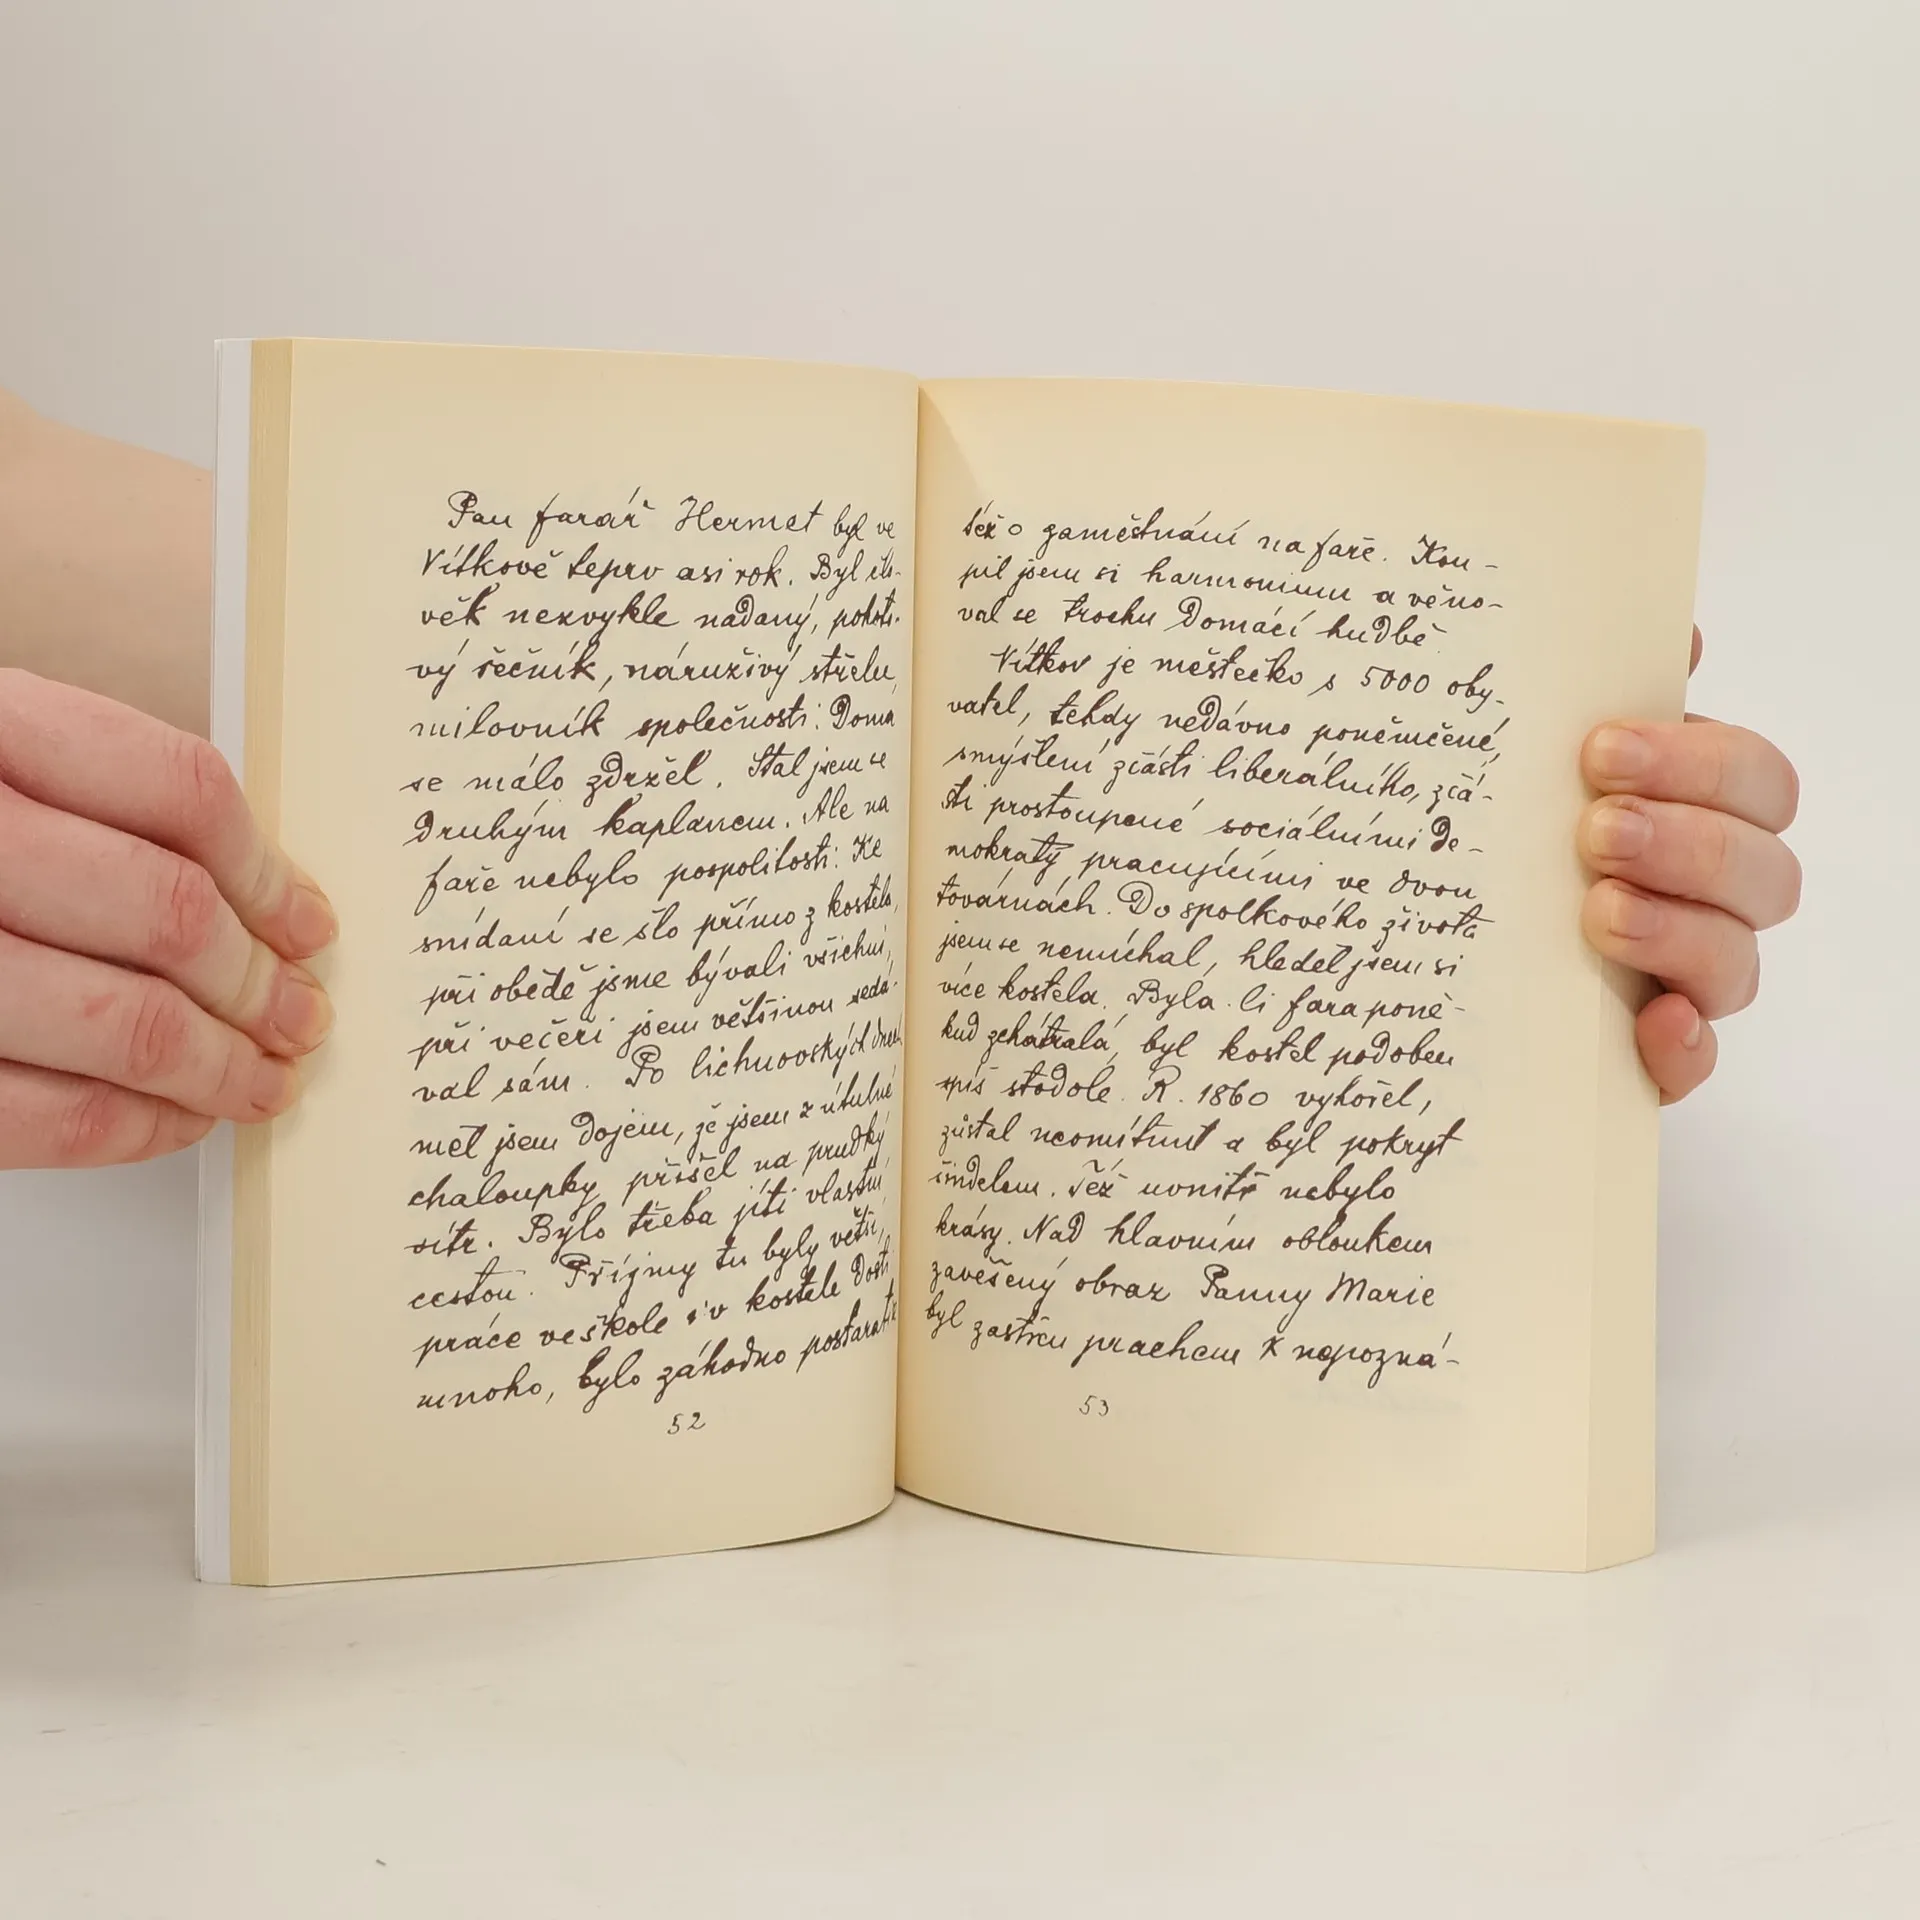 Pan farář Hermet byl ve
Vítkově teprv asi rok. Byl člo-
věk nezvykle nadaný, pohoto-
vý řečník, náruživý střelec,
milovník společnosti. Doma
se málo zdržel. Stal jsem se
druhým kaplanem. Ale na
faře nebylo pospolitosti. Ke
snídaní se šlo přímo z kostela,
při obědě jsme bývali všichni,
při večeři jsem většinou sedá-
val sám. Po lichnovských
měl jsem dojem, že jsem z útulné
chaloupky přišel na prudký
vítr. Bylo třeba jíti vlastní
cestou. Příjmy tu byly větší,
práce ve škole i v kostele dosti
mnoho, bylo záhodno postarat se
52
též o zaměstnání na faře. Kou-
pil jsem si harmonium a věno-
val se trochu domácí hudbě.
Vítkov je městečko s 5000 oby-
vatel, tehdy nedávno poněmčené,
smýšlení zčásti liberálního, zčá-
sti prostoupené sociálními de-
mokraty, pracujícími ve dvou
továrnách. Do spolkového života
jsem se nemíchal, hleděl jsem si
více kostela. Byla-li fara poně-
kud zchátralá, byl kostel podoben
spíš stodole. R. 1860 vyhořel,
zůstal neomítnut a byl pokryt
šindelem. Též uvnitř nebylo
krásy. Nad hlavním obloukem
zavěšený obraz Panny Marie
byl zastřen prachem k nepozná-
53